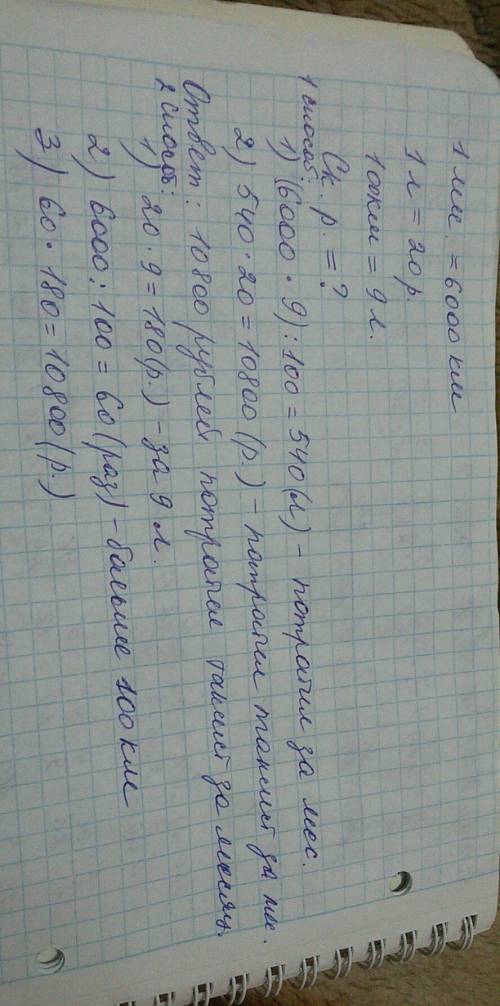 1 мм. = 6000 км
1 л = 20 р.
100км = 9 л.
Ск. р. = ?
1 способ:
1) (6000 · 9) : 100 = 540 (л) - потратил за мес.
2) 540 · 20 = 10800 (р.) - потратил таксист за мес.
Ответ: 10800 рублей потратил таксист за месяц.
2 способ:
1) 20 · 9 = 180 (р.) - за 9 л.
2) 6000 : 100 = 60 (раз) - больше 100 км
3) 60 · 180 = 10800 (р.)